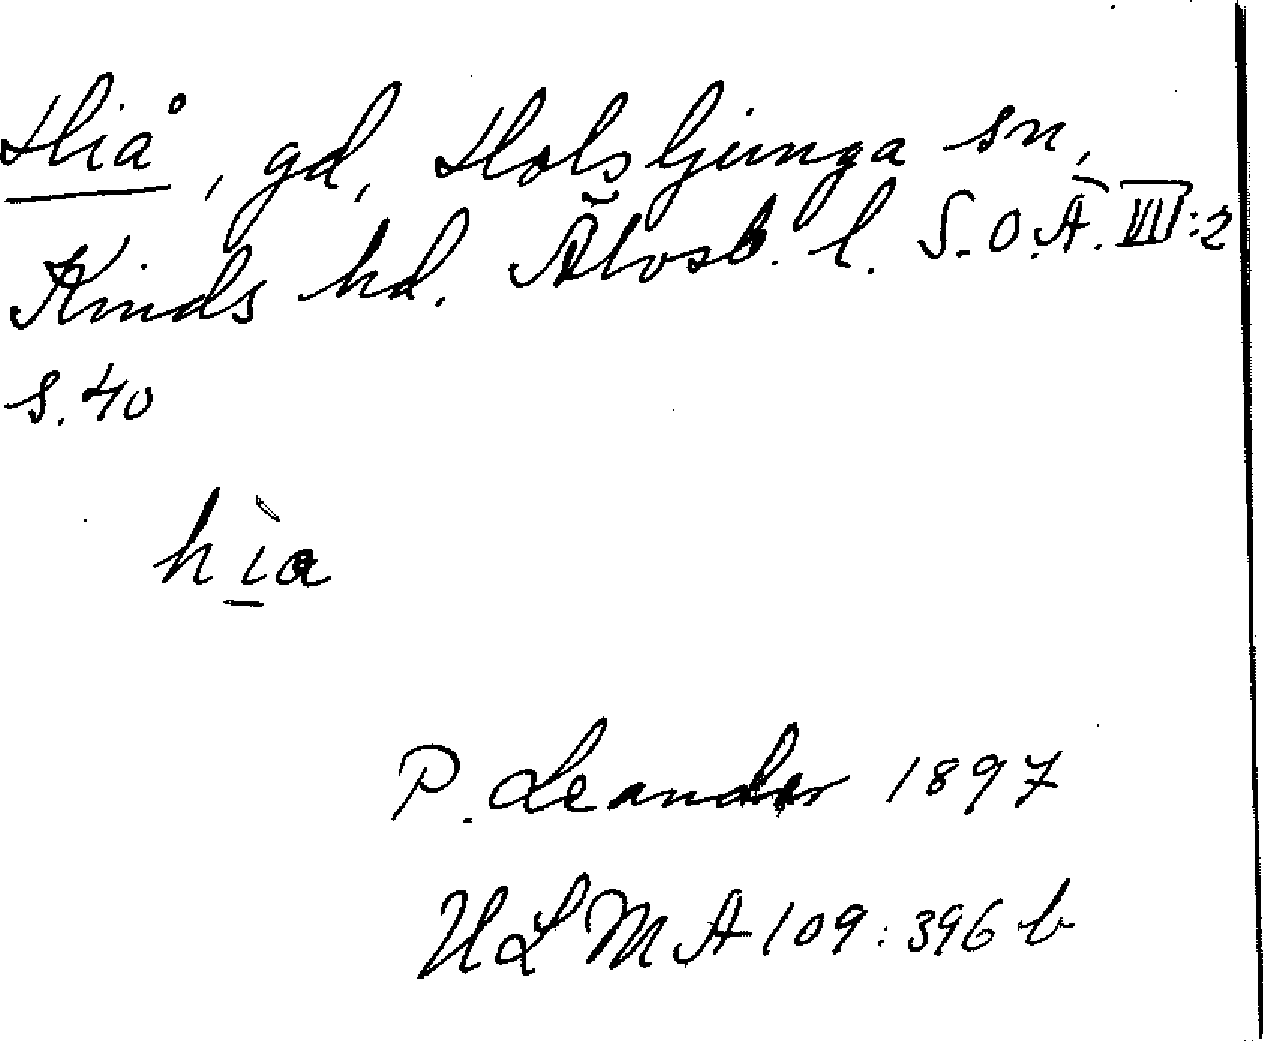 Hiå, gd, Holsljunga sn,
Kinds hd. Älvsb. l. S.O.Ä. VII:2
s. 40
hìa
P. Leander 1897
ULMA 109:396 b